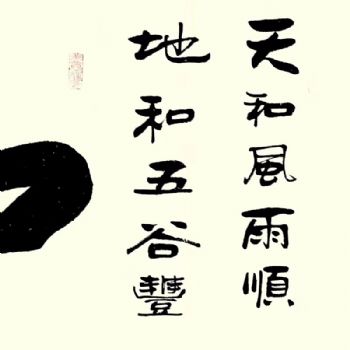 天和風雨順
地和五谷豐